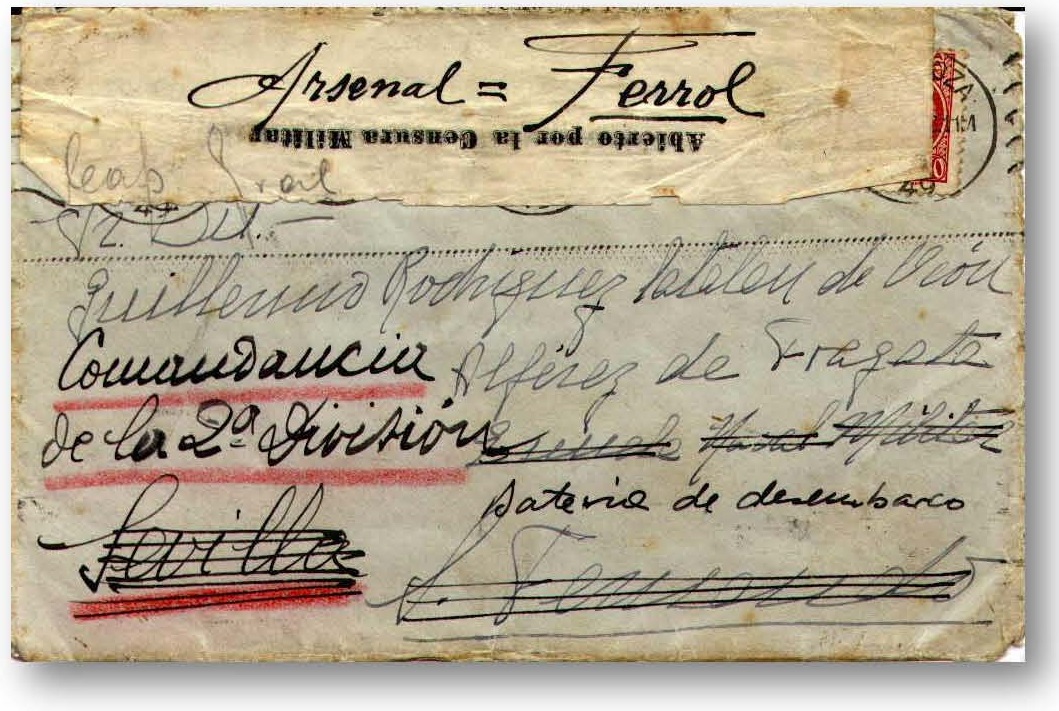 Arsenal = Ferrol
Abierto por la Censura Militar
Guillermo Rodríguez de
Comandancia
Alférez de Fragata
de la 2ª División
Escuela Naval Militar
Batería de desembarco
Sevilla
S. Fernando
49